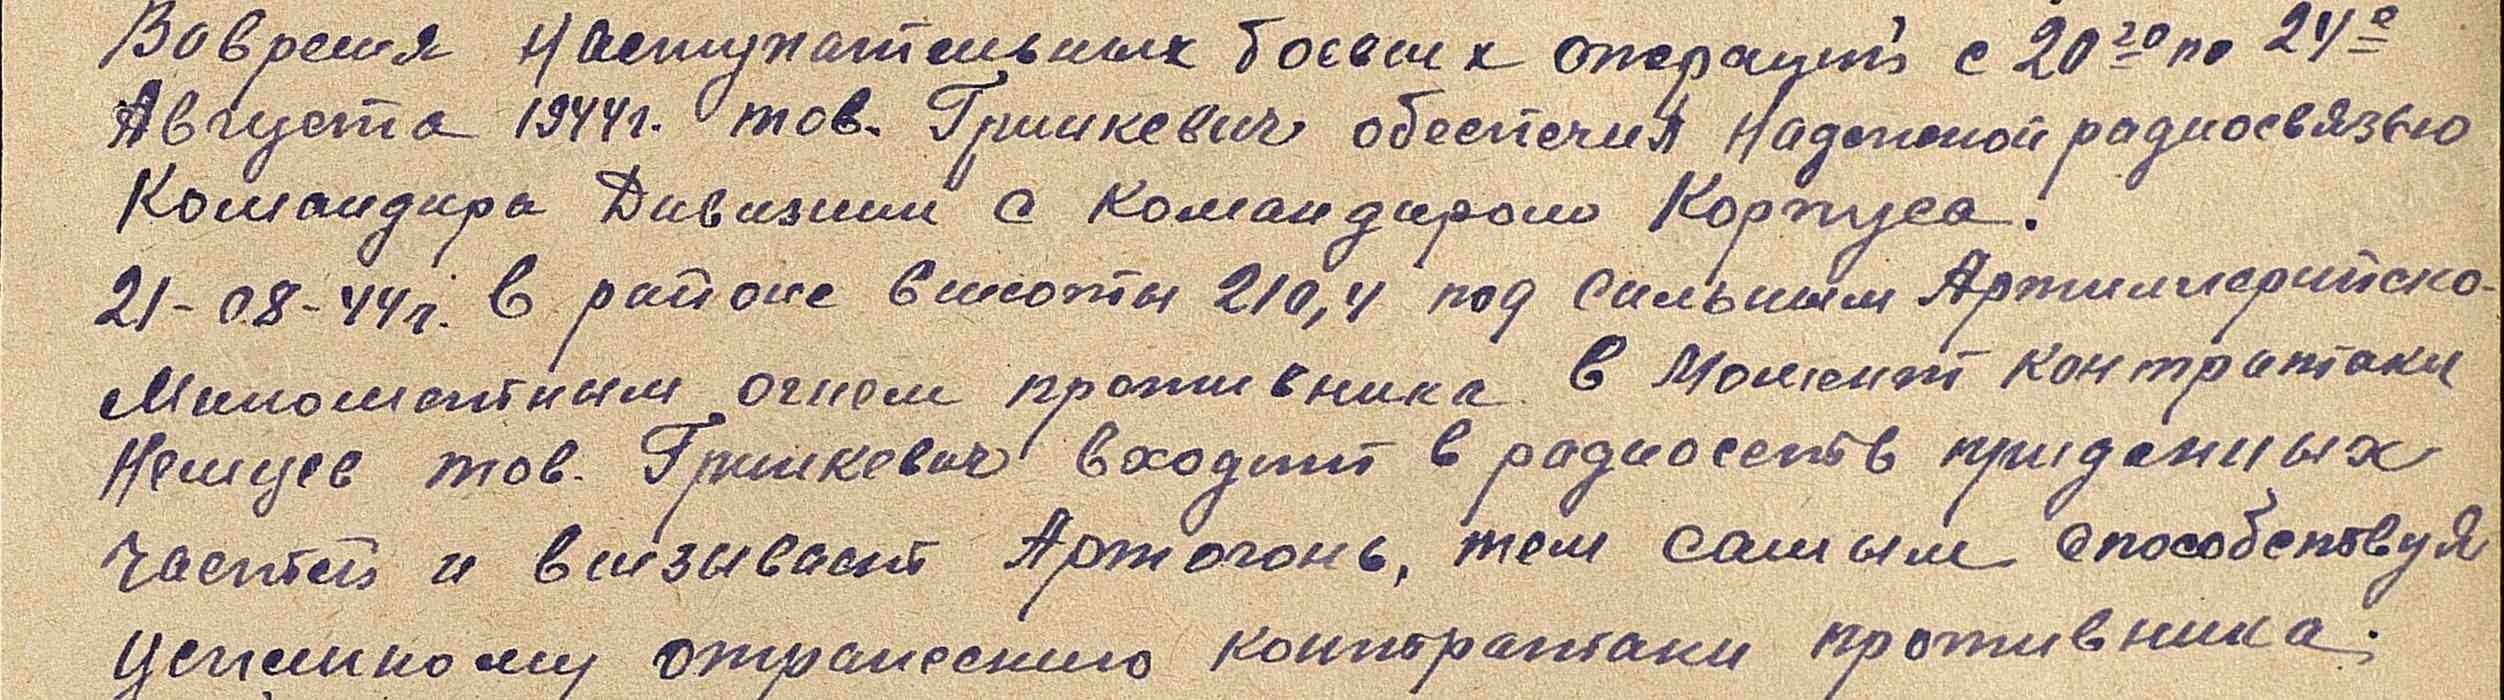 Вовремя Наступательных боевых операций с 20го по 24е
Августа 1944г. тов. Гринкевич обеспечил Надежной радиосвязью
Командира Дивизии с Командиром Корпуса.
21-08-44г. в районе высоты 210,4 под Сильным Артиллерийско-
Минометным огнем противника в Момент Контратаки
Немцев тов. Гринкевич входит в радиосеть приданных
Частей и вызывает Артогонь, тем самым способствуя
Успешному отражению контратаки противника.